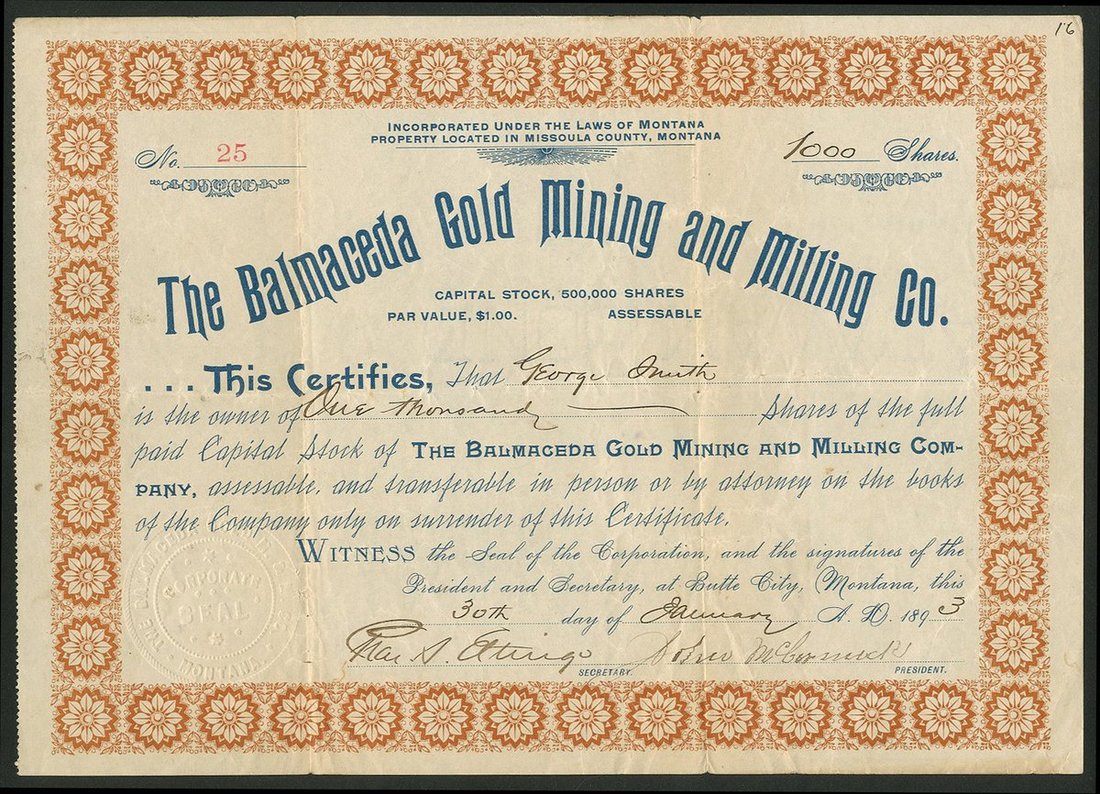 16
INCORPORATED UNDER THE LAWS OF MONTANA
PROPERTY LOCATED IN MISSOULA COUNTY, MONTANA
No. 25
1000 Shares.
The Balmaceda Gold Mining and Milling Co.
CAPITAL STOCK, 500,000 SHARES
PAR VALUE, $1.00. ASSESSABLE
... This Certifies, That George Smith
is the owner of One thousand Shares of the full
paid Capital Stock of THE BALMACEDA GOLD MINING AND MILLING COM-
PANY, assessable, and transferable in person or by attorney on the books
of the Company only on surrender of this Certificate.
WITNESS the Seal of the Corporation, and the signatures of the
President and Secretary, at Butte City, Montana, this
30th day of January A. D. 1893
John McCormick
SECRETARY. PRESIDENT.
THE BALMACEDA
CORPORATE
SEAL
MONTANA